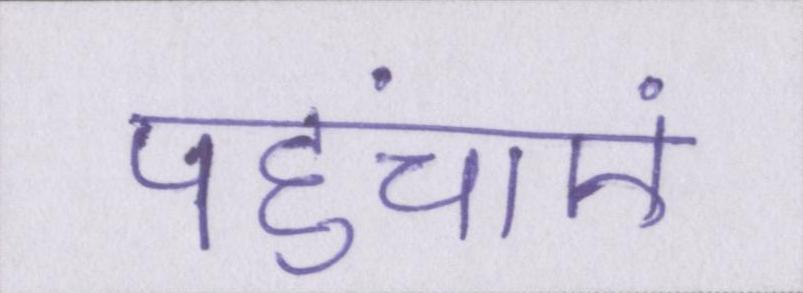 पहुंचाएं